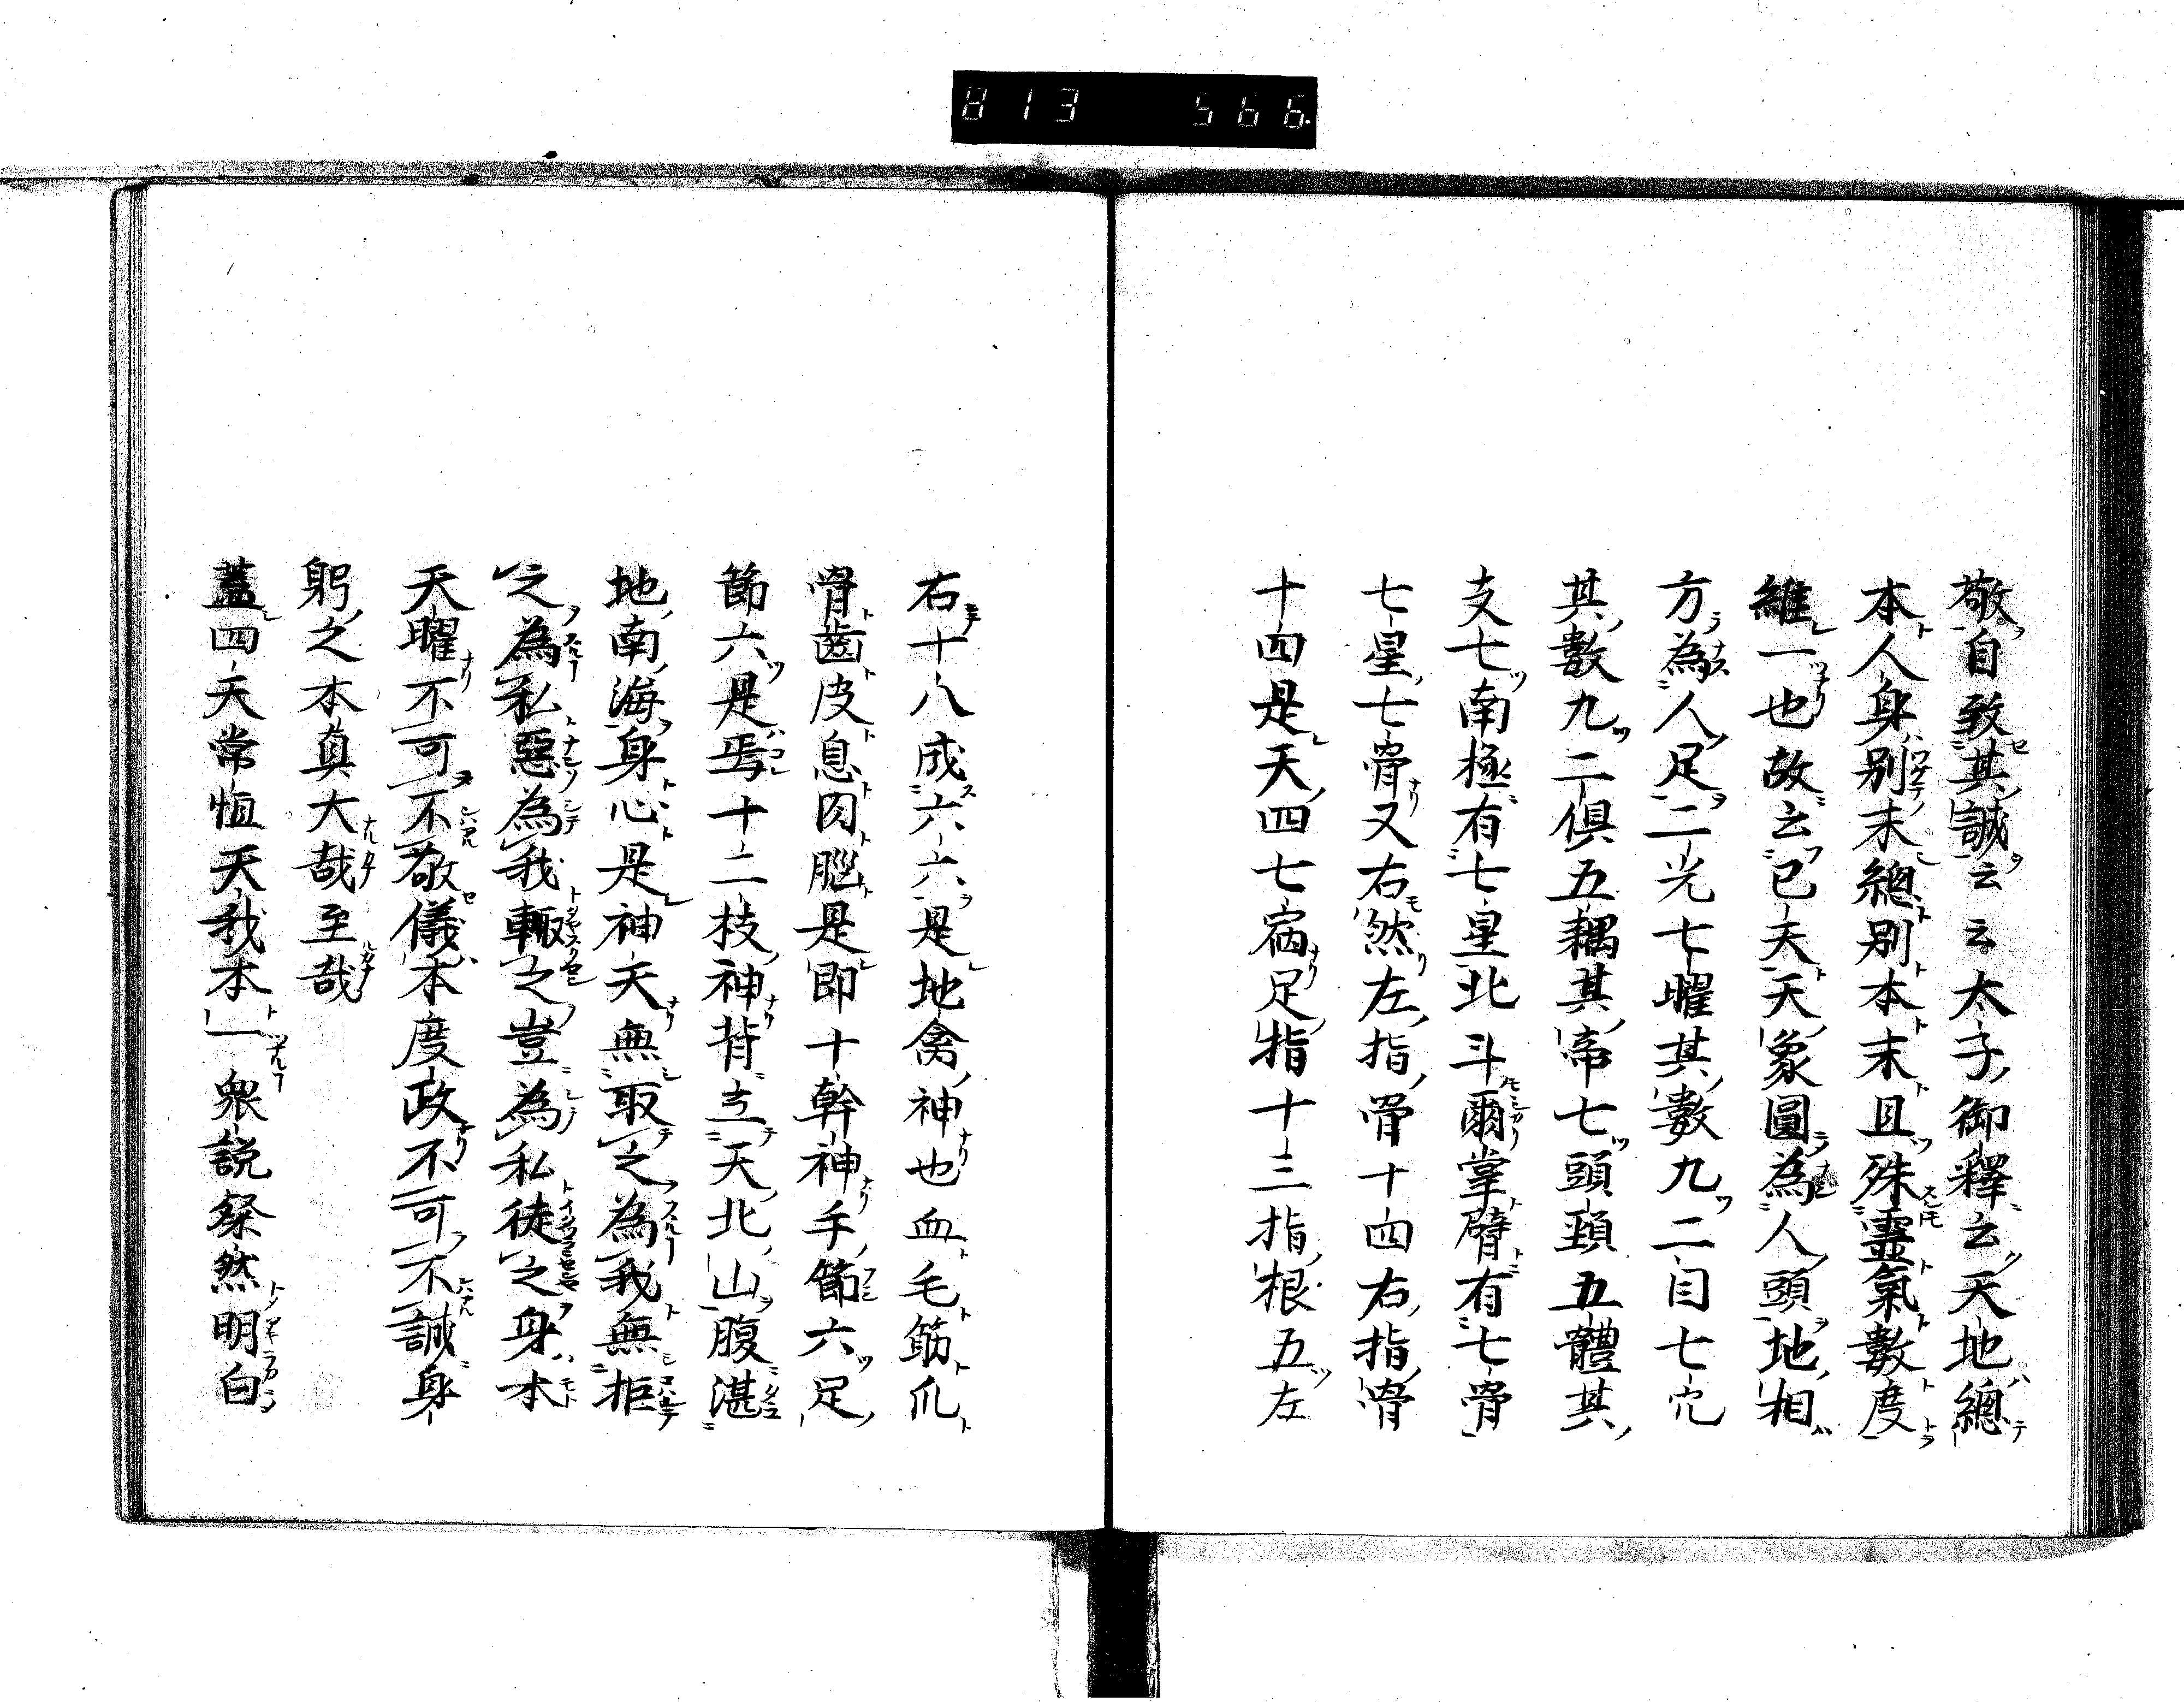 813 566
敬自致其誠云云太子御釋云天地總
本人身別末總別本末且殊靈氣數度
維一也故云已夫天象圓為人頭地相
方為人足二光七曜其數九二目七穴
其數九二俱五耦其帝七頭頚五體其
支七南極有七星北斗爾掌臂有七骨
七星七骨又右然左指骨十四右指骨
十四是天四七宿足指十三指根五左
右十八成六六是地禽神也血毛筋爪
骨齒皮息肉腦是即十幹神手節六足
節六是焉十二枝神背立天北山腹湛
地南海身心是神天無取之為我無拒
之為私惡為我輙之豈為私徒之身本
天曜不可不敬儀本度政不可不誠身
躬之本真大哉至哉
蓋四天常恒天我本一衆説粲然明白